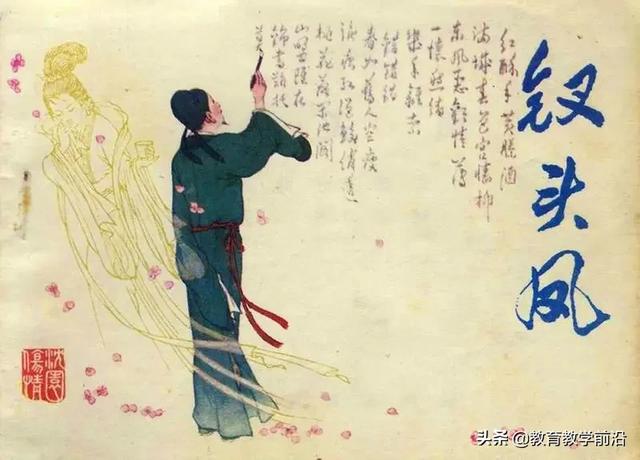 钗头凤
红酥手黄縢酒
满城春色宫墙柳
东风恶欢情薄
一懷愁绪
幾年離索
錯錯錯
春如舊人空瘦
淚痕红浥鲛绡透
桃花落闲池阁
山盟雖在
錦書難托
莫
沈園
傷情
头条 @教育教学前沿